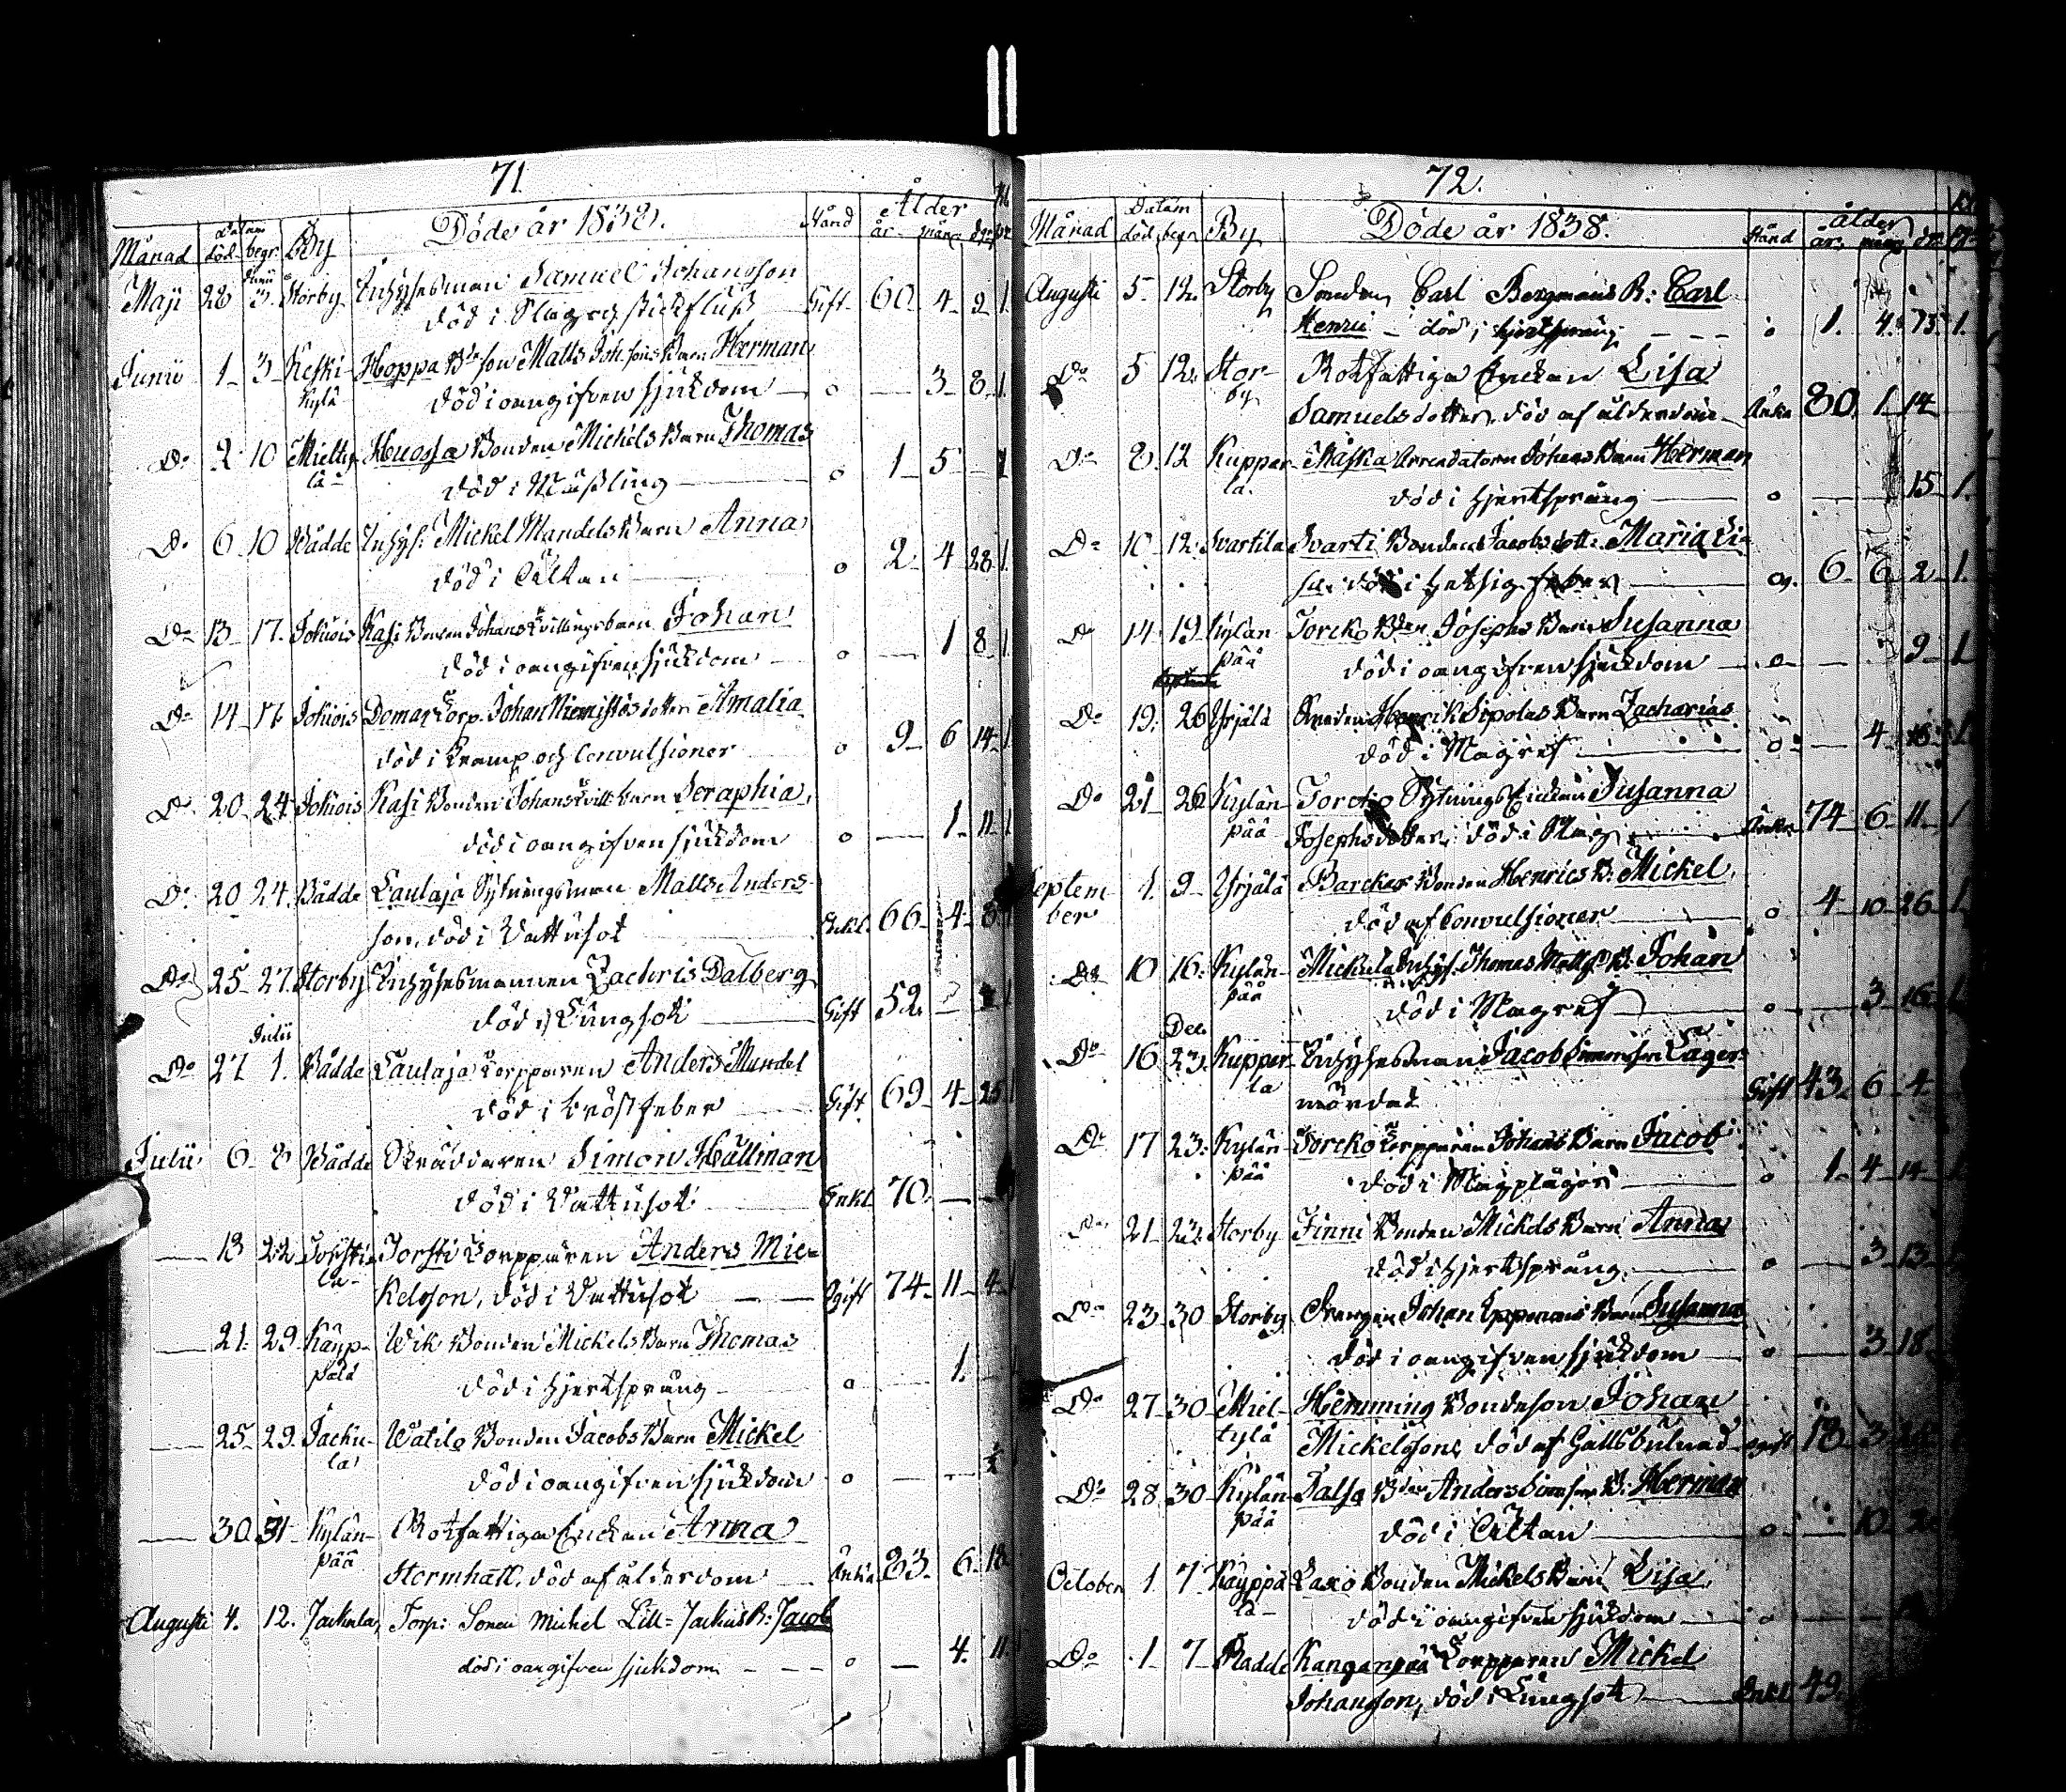 71.
Döde år 1838.
Månad Datum död begr. By Stånd Ålder år mån: dgr
Maji 28 Junii 3. Storby Inhysesman Samuel Johansson
död i Slag och stickfluß Gift 60 4 2 1.
Junii 1 3 Keski- Hoppa Bdeson Matts Joh:sons Barn Herman
kylä död i oangifven sjukdom o — 3 8 1.
Do 2 10 Mielty- Huossa Bonden Michels Barn Thomas
lä död i Mäßling o 1 5
Do 6 10 Wädde Inhys: Mickel Mandels Barn Anna
död i Ältan o 2 4 28 1.
Do 13 17. Johiois Kasi Bonden Johans Tvillingebarn Johan
död i oangifven sjukdom o — 1 8 1.
Do 14 17 Johiois Domar Torp. Johan Niemistös dotter Amalia
död i Kramp och Convulsioner o 9 6 14 1
Do 20 24 Johiois Kasi Bonden Johans Tvill: barn Seraphia,
död i oangifven sjukdom o — 1 11 1
Do 20 24. Wädde Laulaja Sytningsman Matts Anders-
son, död i Vattusot Enkl. 66 4 8
Do 25 27. Storby Inhysesmannen Zachris Dalberg
död i Lungsot Gift 52
Julii
Do 27 1. Wädde Laulaja Torpparen Anders Mandel
död i Bröstfeber Gift 69 4 25
Julii 6 8 Wädde Skräddaren Simon Hällman
död i Vattusot Enkl. 70
— 13 22 Torsti- Torsti Torpparen Anders Mic-
la kelsson, död i Vattusot Ogift 74 11 4
— 21. 29. Käyp- Wik Bonden Mickels Barn Thomas
pälä död i Hjertsprång o — 1.
— 25 29. Jacku- Watilo Bonden Jacobs Barn Mickel
la död i oangifven sjukdom o — —
— 30 31 Kylän- Rotfattiga Enkan Anna
pää Stormhatt, död af ålderdom Enka 83 6 18
Augusti 4. 12. Jackula Torp: Sonen Michel Lill-Jackus B: Jacob
död i oangifven sjukdom o — 4. 11.
72.
Döde år 1838.
Månad Datum död begr. By Stånd ålder år mån dr.
Augusti 5. 12. Storby Smeden Carl Bergmans B: Carl
Henric död i hjertsprång o 1. 4. 1.
Do 5 12. Stor- Rotfattiga Enckan Lisa
by Samuelsdotter, död af ålderdom Enka 80 1 14
Do 8 12 Kuppar- Raska Arrendatorn Johans Barn Herman
la. död i hjertsprång o — 15 1.
Do 10 12. Svartila Svarti Bonden Jacobs dott: Maria Li-
sa. död i hetsig feber og. 6 6 2 1.
Do 14 19 Kylän- Torcko Bden Josephs Barn Susanna
pää död i oangifven sjukdom o — 9 1
Do 19. 26 Yrjälä Henrik Sipolas Barn Zacharias
död i Magref o — 4
Do 21 26 Kylän- Torcko Sytnings Enkan Susanna
pää Josephsdotter, död i Slag Enka 74 6 11 1
Septem- 1. 9 Yrjälä Barcker Bonden Henrics B: Mickel,
ber död af Convulsioner o 4 10 26 1
Do 10 16. Kylän- Mickula Inhys. Thomas Mattss: B. Johan
pää död i Magref o 3 16
Do 16 23. Kuppar- Inhysesman Jacob Simonsson Lager-
la mördad Gift 43 6 4
Do 17 23. Kylän- Torcko Torpparen Johans Barn Jacob
pää död i Magplågor o 1 4 14
Do 21 23. Storby Finni Bonden Mickels Barn Anna
död i hjertsprång. o — 3 13
Do 23 30 Storby Drengen Johan Barn Susanna
död i oangifven sjukdom o — 3 18
Do 27 30 Miel- Hemming Bondeson Johan
tylä Mickelsson, död af Hallsbulnad ogift 18 3
Do 28 30 Kylän- Talso Bden Anders Simonsons B. Herman
pää död i Ältan o — 10
October 1 7 Käyppä- Laxo Bonden Mickels Barn Lisa,
lä död i oangifven sjukdom o
Do 1 7 Wadde Kanganpää Torpparen Mickel
Johansson, död i Lungsot Enkl 49